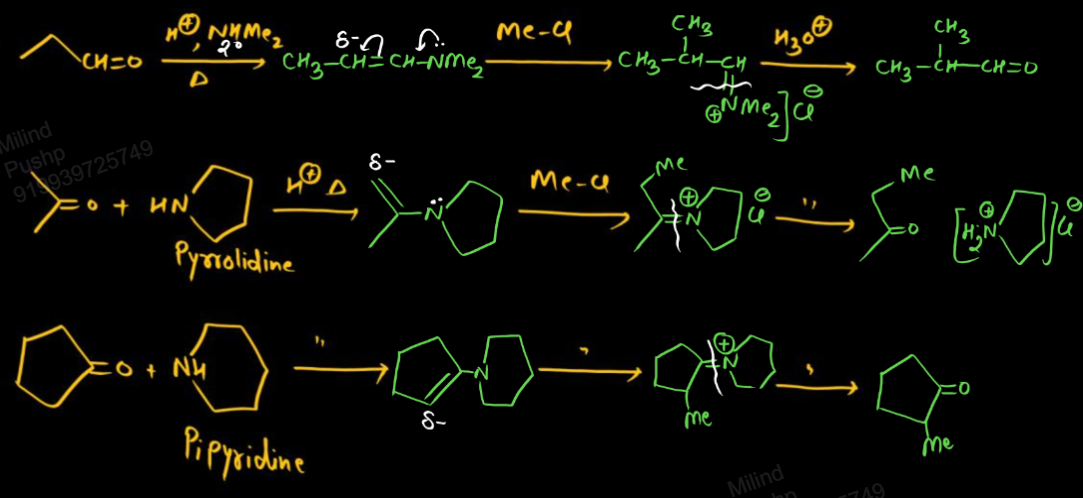 H⊕, NHMe₂ 2° Δ
CH=O
δ- CH₃-CH=CH-N̈Me₂
Me-Cl
CH₃
CH₃-CH-CH
⊕NMe₂]Cl⊖
H₃O⊕
CH₃
CH₃-CH-CH=O
Milind
Pushp
919939725749
=O + HN
Pyrrolidine
H⊕ Δ
δ-
N̈
Me-Cl
Me
=N⊕ Cl⊖
"
Me
=O
[H₂N⊕]Cl⊖
=O + NH
Pipyridine
"
N
δ-
,
=N⊕
Me
,
=O
Me
Milind